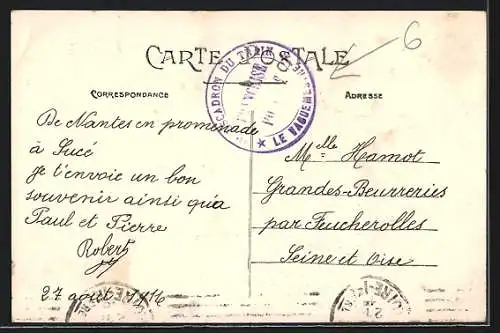 CARTE POSTALE
6
CORRESPONDANCE
ADRESSE
ESCADRON DU TRAIN
LE VAGUEMESTRE
De Nantes en promenade
à Sucé
je t'envoie un bon
souvenir ainsi qu'à
Paul et Pierre
Robert
27 août 1916
Mlle Hamot
Grandes-Beurreries
par Feucherolles
Seine et Oise